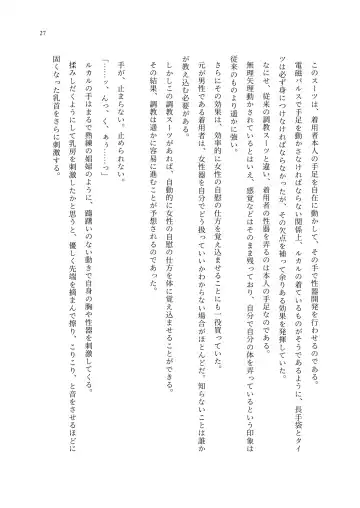 このスーツは、着用者本人の手足を自在に動かして、その手で性器開発を行わせるのである。
電磁パルスで手足を動かさなければならない関係上、ルカルの着ているものがそうであるように、長手袋とタイ
ツは必ず身につけなければならなかったが、その欠点を補って余りある効果を発揮していた。
なにせ、従来の調教スーツと違い、着用者の性器を弄るのは本人の手足なのである。
無理矢理動かされているとはいえ、感覚などはそのまま残っており、自分で自分の体を弄っているという印象は
従来のものより遥かに強い。
さらにその効果は、効率的に女性の自慰の仕方を覚え込ませることにも一役買っていた。
元が男性である着用者は、女性器を自分でどう扱っていいかわからない場合がほとんどだ。知らないことは誰か
が教え込む必要がある。
しかしこの調教スーツがあれば、自動的に女性の自慰の仕方を体に覚え込ませることができる。
その結果、調教は遥かに容易に進むことが予想されるのであった。
手が、止まらない。止められない。
「……ッ、んっ、く、ぅ……っ」
ルカルの手はまるで熟練の娼婦のように、躊躇いのない動きで自身の胸や性器を刺激してくる。
揉みしだくようにして乳房を刺激したかと思うと、優しく先端を摘まんで擦り、こりこり、と音をさせるほどに
固くなった乳首をさらに刺激する。
27